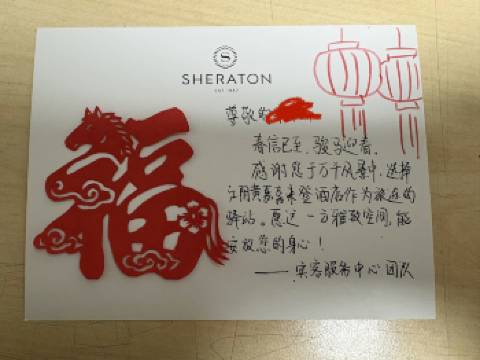 SHERATON
福
尊敬的
春信已至,骏马迎春。
感谢您于万千风景中,选择
江阴黄嘉喜来登酒店作为旅途的
驿站。愿这一方雅致空间,能
安放您的身心!
——宾客服务中心团队